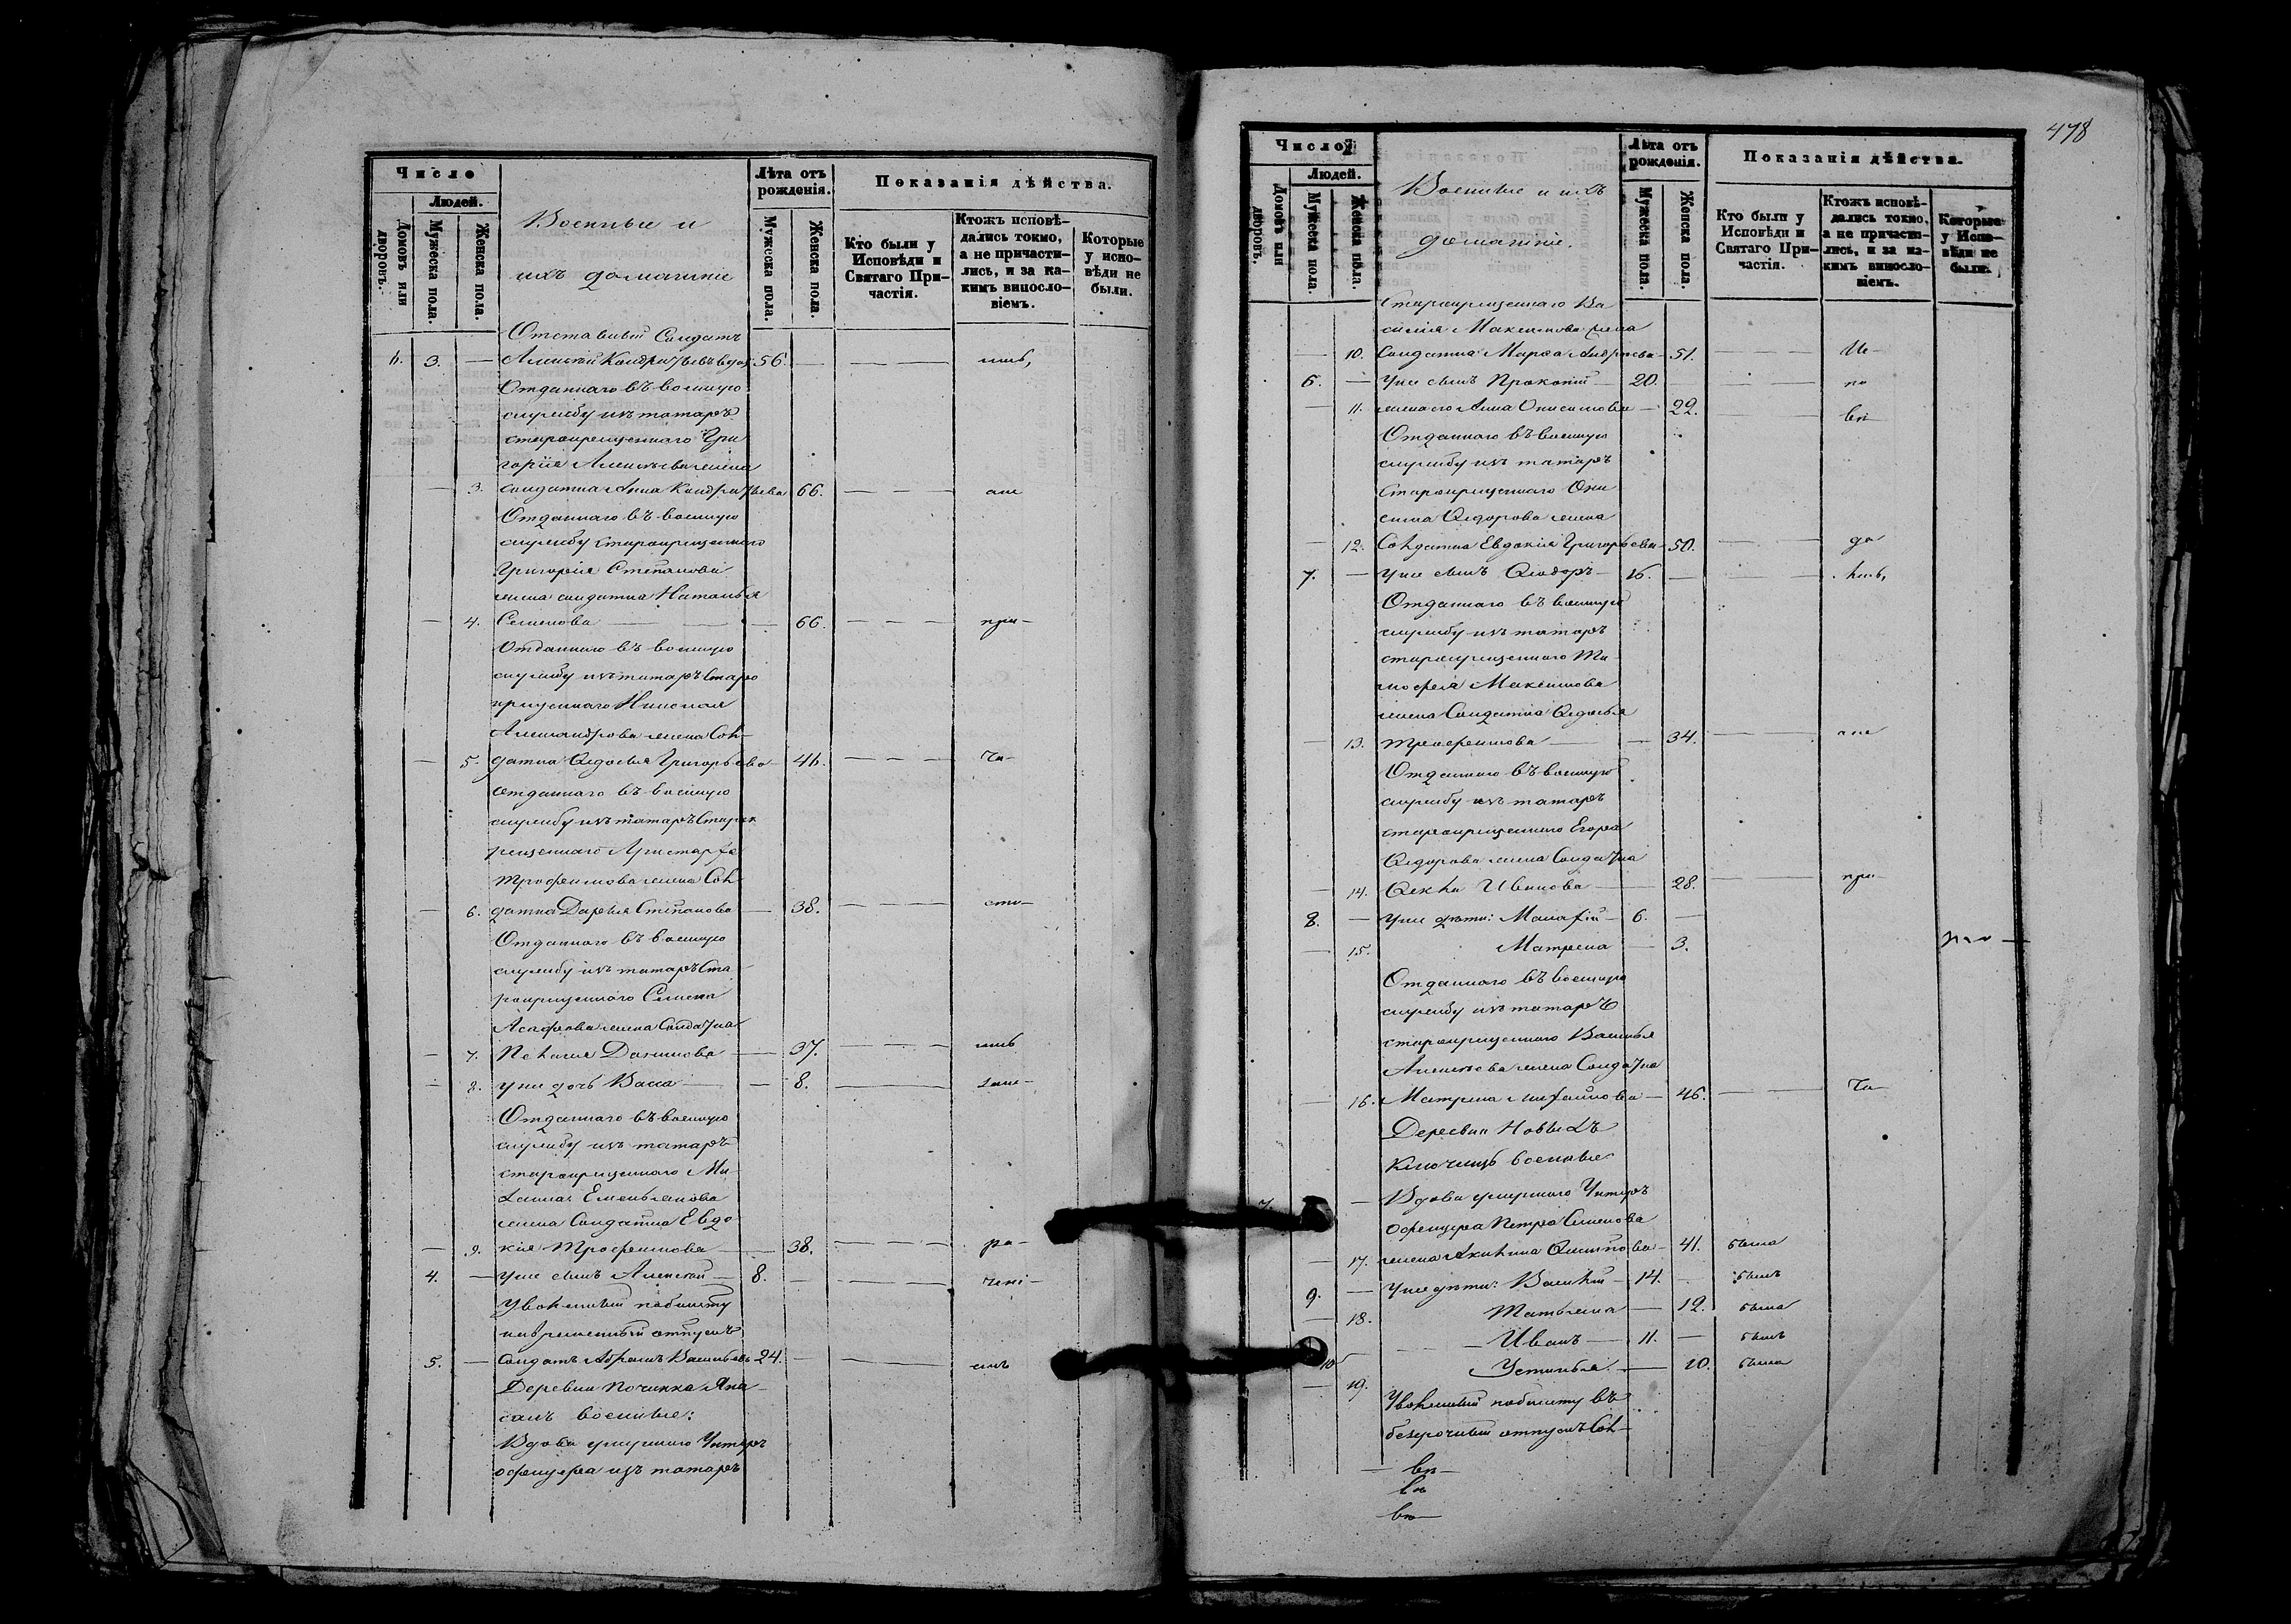 Число
Людей.
Домовъ или дворовъ.
Мужеска пола.
Женска пола.
Военные и
ихъ домашніе
Лѣта отъ рожденія.
Мужеска пола.
Женска пола.
Показанія дѣйства.
Кто были у Исповѣди и Святаго Причастія.
Ктожъ исповѣдались токмо, а не причастились, и за какимъ винословіемъ.
Которые у исповѣди не были.
Отставный Солдатъ
3. — Алексѣй Кондратьевъ вдов. 56.
Отданнаго въ военную
службу изъ татаръ
старокрещеннаго Гри
горія Алексѣева жена
— 3. солдатка Анна Кондратьева 66.
Отданнаго въ военную
службу старокрещеннаго
Григорія Степанова
жена солдатка Наталья
— 4. Семенова — — 66. — — — при-
Отданнаго въ военную
службу изъ татаръ Старо
крещеннаго Николая
Александрова жена Сол-
— 5. датка Ѳедосья Григорьева — — — — ча-
отданнаго въ военную
службу изъ татаръ Старок
рещеннаго Аристарха
Трофимова жена Сол-
— 6. датка Дарья Степанова — 38. — — — сти-
Отданнаго въ военную
службу изъ татаръ Ста
рокрещеннаго Семена
жена Солдатка
— 7. Пелагія Данилова — 37. — — —
— 8. у нее дочь Васса — 8. — —
Отданнаго въ военную
службу изъ татаръ
старокрещеннаго Ми
хаила Емельянова
жена Солдатка Евдо
— 9. кія Трофимова — 38. — — — ра-
4. — у нее сынъ Алексѣй — 8. — — —
Уволенный по билету
во временный отпускъ
5. — Солдатъ Абрамъ Васильевъ 24. — —
Деревни Починка Яна
салъ военные:
Вдова умершаго Унтеръ
офицера изъ татаръ
478
Число
Людей.
Домовъ или дворовъ.
Мужеска пола.
Женска пола.
Военные и ихъ
домашніе.
Лѣта отъ рожденія.
Мужеска пола.
Женска пола.
Показанія дѣйства.
Кто были у Исповѣди и Святаго Причастія.
Ктожъ исповѣдались токмо, а не причастились, и за какимъ винословіемъ.
Которые у Исповѣди не были.
Старокрещеннаго Ва
силія Максимова жена
— 10. Солдатка Марѳа Андреева — 51. — — Ис-
6. — у нее сынъ Прокопій — 20. — — по
— 11. жена его Анна Онисимова — 22. — — вѣ-
Отданнаго въ военную
службу изъ татаръ
Старокрещеннаго Они
сима Ѳедорова жена
— 12. Солдатка Евдокія Григорьева 50. — — да
7. — у нее сынъ Ѳеодоръ — 16. — — лись,
Отданнаго въ военную
службу изъ татаръ
старокрещеннаго Ти
моѳея Максимова
жена Солдатка Ѳедосья
— 13. Трофимова — — 34. — —
Отданнаго въ военную
службу изъ татаръ
старокрещеннаго Егора
Ѳедорова жена Солдатка
— 14. Ѳекла Иванова — 28. — — при-
8. — у нее дѣти: Малахій — 6. —
— 15. Матрена — 3.
Отданнаго въ военную
службу изъ татаръ
старокрещеннаго Василья
Алексѣева жена Солдатка
— 16. Матрена Михайлова — 46. — — ча-
Деревни Новыхъ
Ключищъ военные
7 — Вдова умершаго Унтеръ
офицера Петра Семенова
— 17. жена Акилина — 41. была
9. — У нее дѣти: Василій — 14. — былъ
— 18. Татьяна — 12. была
10 Иванъ — 11. — былъ
— 19. Устинья — 10. была
Уволенный по билету въ
безсрочный отпускъ Сол-
— вѣ —
вѣ
вѣ —